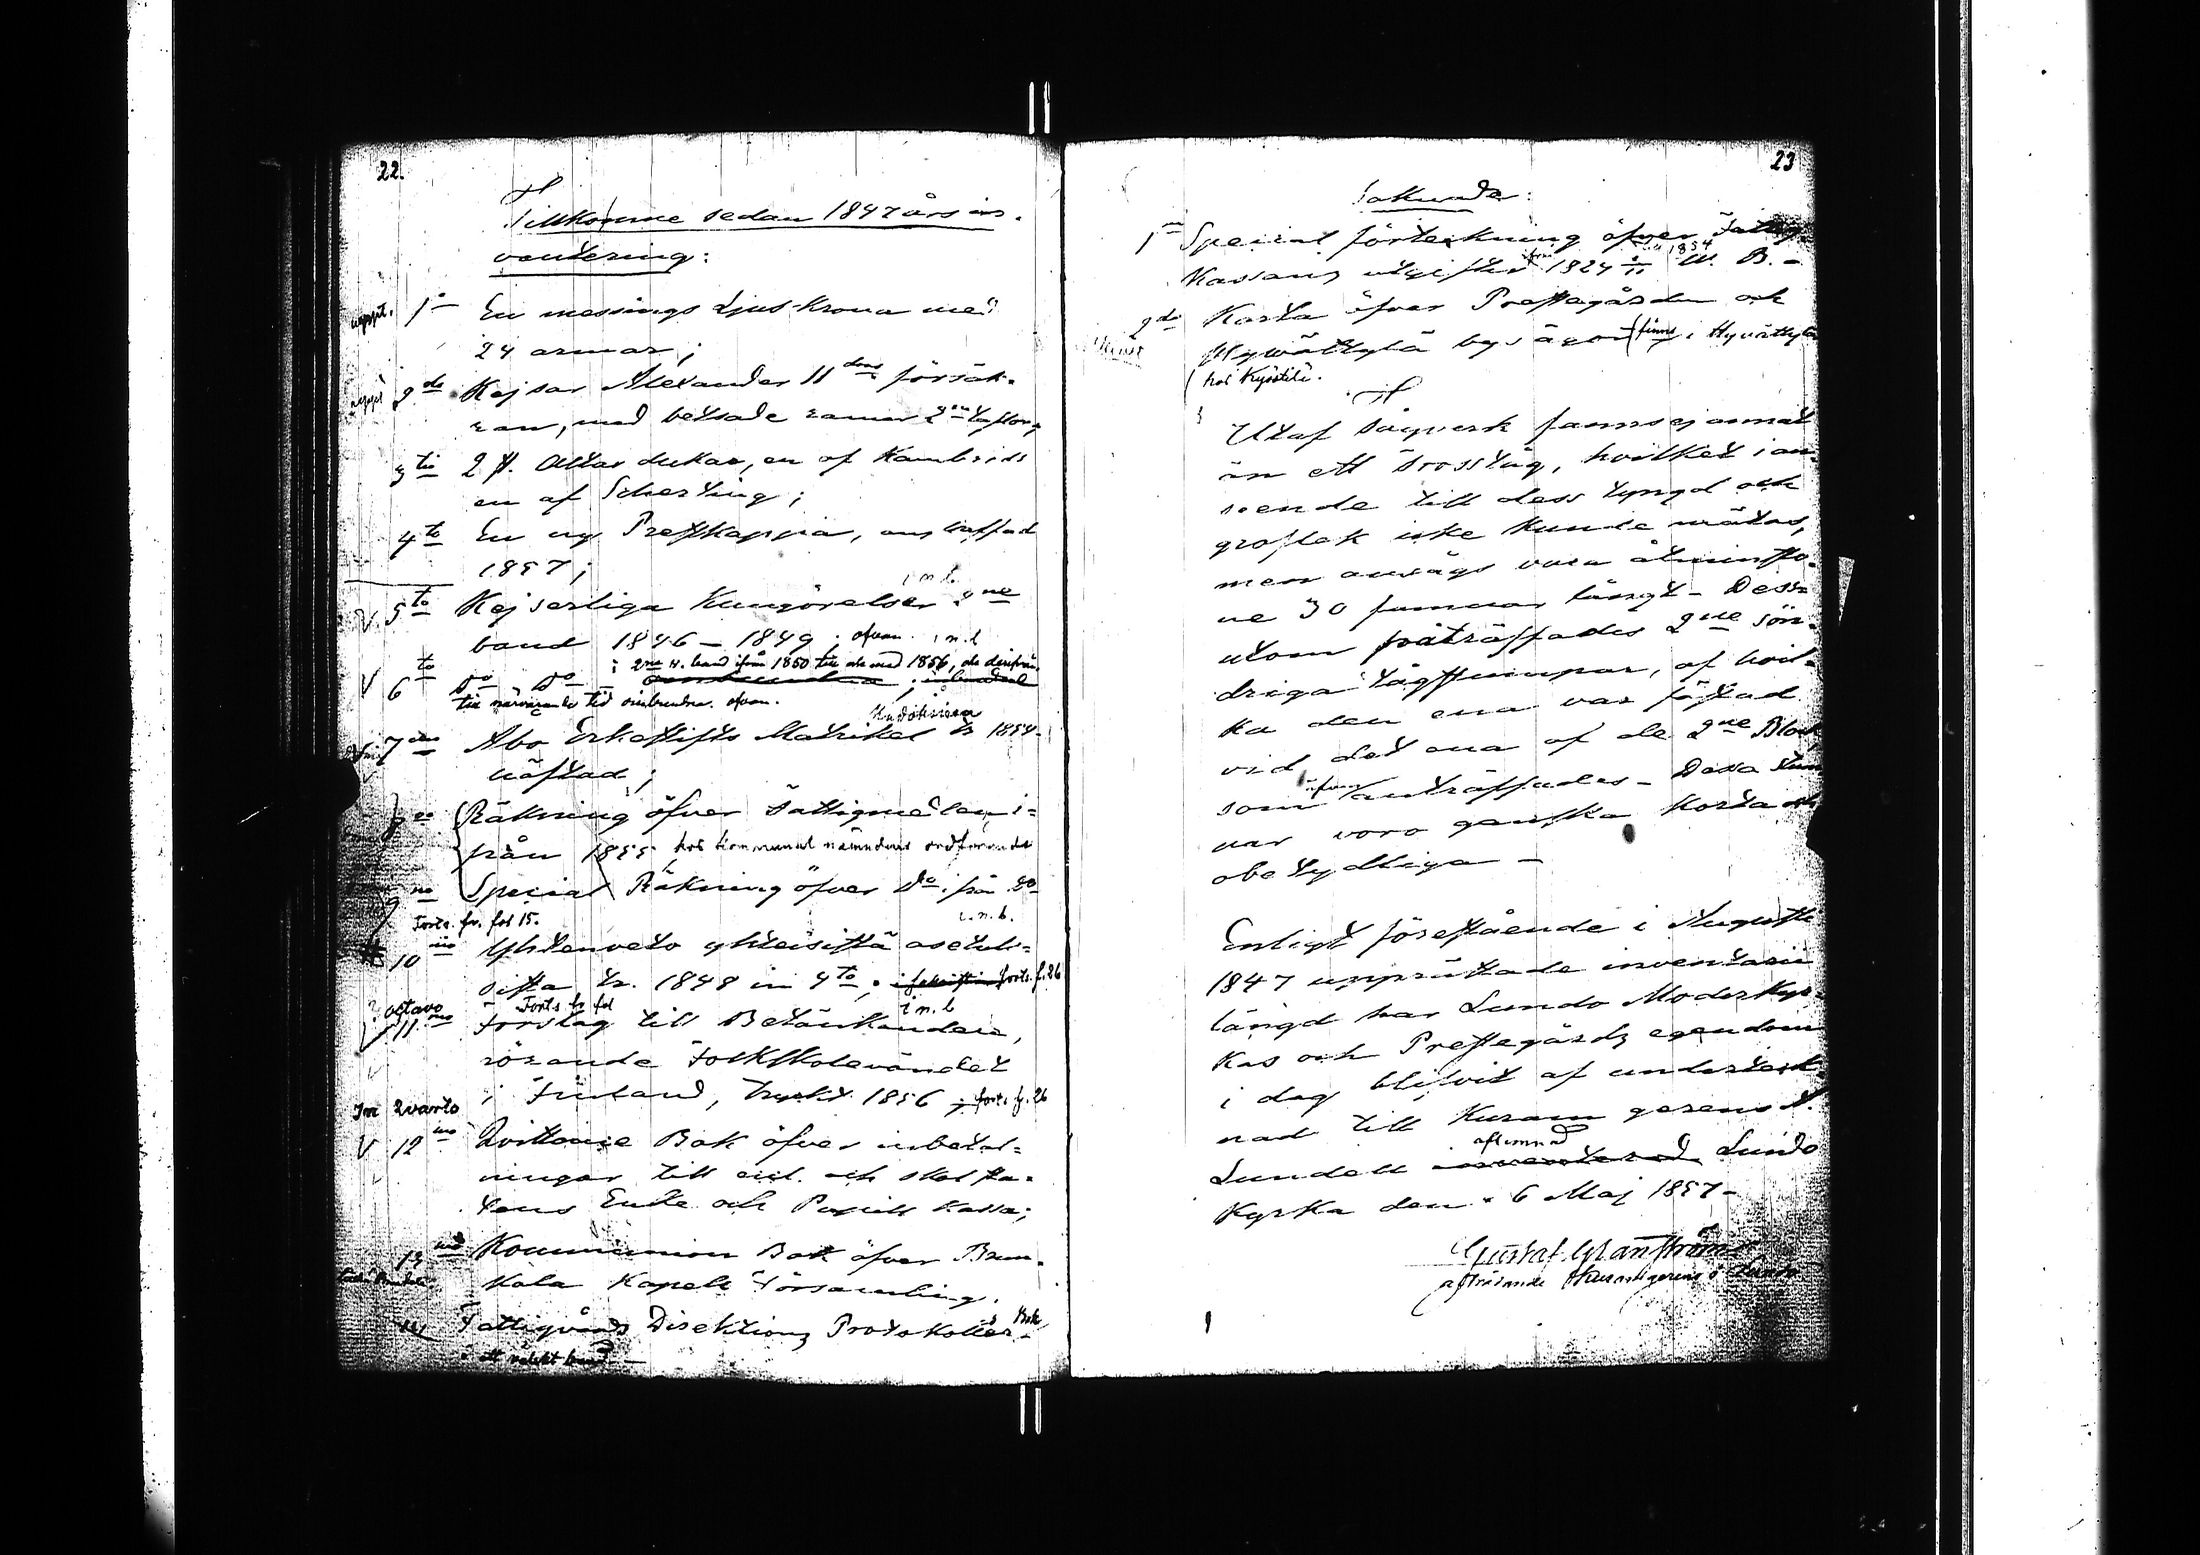 22.
Tillkomne sedan 1847 års in-
ventering:
1o En messings Ljus-Krona med
24 armar;
2do Kejsar Alexander II dens försäk-
ran, med betsade ramar 2ne taflor;
3tio 2 st. Altar dukar, en af Kambrids
en af Scherting;
4to En ny Prestkappa, anskaffad
1857;
i n. b.
V. 5to Kejserliga Kungörelser 2ne
band 1846 – 1849; ofvan. i n. b
i 2ne n. band ifrån 1850 till och med 1856, och derifrån
V 6to do do
till närvarande tid oinbundna. ofvan.
7mo Åbo Erkestifts Matrikel tr 1854.
häftad;
Räkning öfver Fattigmedlen i-
från 1855. hos kommunal nämndens ordförande
9no Special Räkning öfver do. från do
Forts. fr. fol 15.
i. n. b.
10mo Yhtenveto yhteisistä asetuk-
sista tr. 1848 in 4to; forts. f. 26
? octavo Forts fr fol i n. b
V 11mo Förslag till Betänkanden,
rörande Folkskolevändet
i Finland, tryckt 1856; forts f. 26
In Quarto
V 12mo Qvittence Bok öfver inbetal-
ningar till eccl. och skol sta-
tens Enke och Pupill Kassa;
13 Kommunion Bok öfver Brun-
kala Kapell Församling.
14 Fattigvårds Direktions Protokoller Bok
i ett häfte band –
23
Sakunder:
1o Special förteckning öfver Fattig-
Kassans utgifter från 1824 1854 W. B. –
2do Karta öfver Prestagården och
Hyvättylä bys ägor (finns i Hyvättylä
(hos Kyöstilä.
Utaf Tågverk fanns ej annat
än ett Trosståg, hvilket i an-
seende till dess tyngd och
groflek icke kunde mätas,
men ansågs vara åtminsto-
ne 30 famnar långt – Dess-
utom påträffades 2ne sön-
driga tågstumpar, af hvil-
ka den ena var fästad
vid det ena af de 2ne Block,
som äfven anträffades – Dessa stum
par voro ganska korta och
obetydliga –
Enligt förestående i Augusti
1847 upprättade inventarii
längd har Lundo Moderkyr-
kas och Prestegårds egendom
i dag blifvit af underteck-
nad till Kuram gerens d.
aflemnad
Lundell inventerad Lundo
Kyrka den 6 Maj 1857 –
Gustaf Granström
afträdande Kuramgerens i Lundo